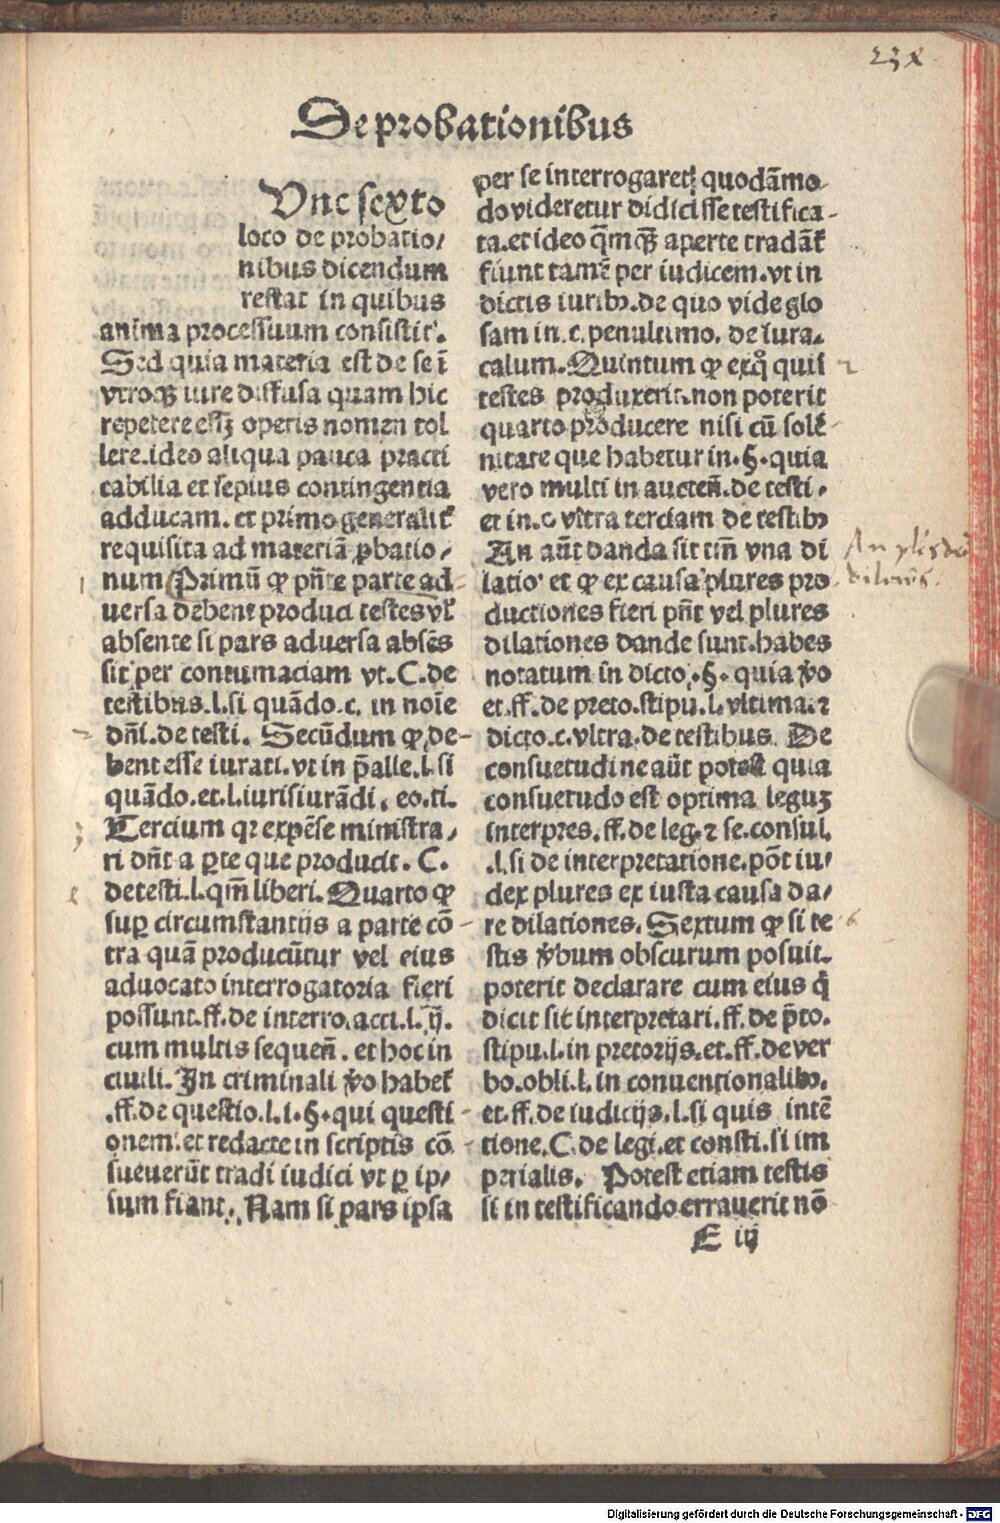 De probationibus
Vnc sexto
loco de probatio/
nibus dicendum
restat in quibus
anima processuum consistit.
Sed quia materia est de se ī
vtroqꝫ iure diffusa quam hic
repetere essꝫ operis nomen tol
lere.ideo aliqua pauca practi
cabilia et sepius contingentia
adducam. et primo generalit̄
requisita ad materiā ꝓbatio/
num Primū ꝙ pn̄te parte ad-
uersa debent produci testes vl̄
absente si pars aduersa absēs
sit per contumaciam vt. C. de
testibus.l.si quādo.c. in noīe
dn̄i.de testi. Secūdum ꝙ de-
bent esse iurati.vt in p̄alle.l.si
quādo.et.l.iurisiurādi. eo.ti.
Tercium qꝛ expēse ministra/
ri dn̄t a ꝑte que producit. C.
de testi.l.qm̄ liberi. Quarto ꝙ
suꝑ circumstantijs a parte cō-
tra quā producūtur vel eius
aduocato interrogatoria fieri
possunt.ff.de interro.acti.l.ij.
cum multis sequen̄. et hoc in
ciuili. In criminali v̄o habet̄
.ff.de questio.l.i.§.qui questi-
onem.et redacte in scriptis cō-
sueuerūt tradi iudici vt ꝑ ip/
sum fiant. Nam si pars ipsa
per se interrogaret quodāmo-
do videretur didicisse testifica-
ta.et ideo q̄mqꝫ aperte tradāt̄
fiunt tamē per iudicem.vt in
dictis iuribꝫ.de quo vide glo
sam in.c.penultimo. de iura.
calum. Quintum ꝙ exq̊ quis
testes produxerit.non poterit
quarto producere nisi cū solē-
nitate que habetur in.§.quia
vero multi in aucten̄.de testi.
et in.c vltra terciam de testibꝫ
An aūt danda sit tm̄ vna di
latio et ꝙ ex causa plures pro-
ductiones fieri pn̄t vel plures
dilationes dande sunt.habes
notatum in dicto.§. quia v̄o
et.ff.de preto.stipu.l.vltima.⁊
dicto.c.vltra.de testibus. De
consuetudine aūt potest quia
consuetudo est optima leguꝫ
interpres.ff.de leg.⁊ se.consul.
.l.si de interpretatione.pōt iu/
dex plures ex iusta causa da/
re dilationes. Sextum ꝙ si te-
stis v̄bum obscurum posuit.
poterit declarare cum eius q̄
dicit sit interpretari.ff.de p̄to.
stipu.l.in pretorijs.et.ff.de ver
bo.obli.l.in conuentionalibꝫ.
et.ff.de iudicijs.l.si quis intē
tione.C.de legi.et consti.l.si im
perialis. Potest etiam testis
si in testificando errauerit nō
E iij
Digitalisierung gefördert durch die Deutsche Forschungsgemeinschaft - DFG